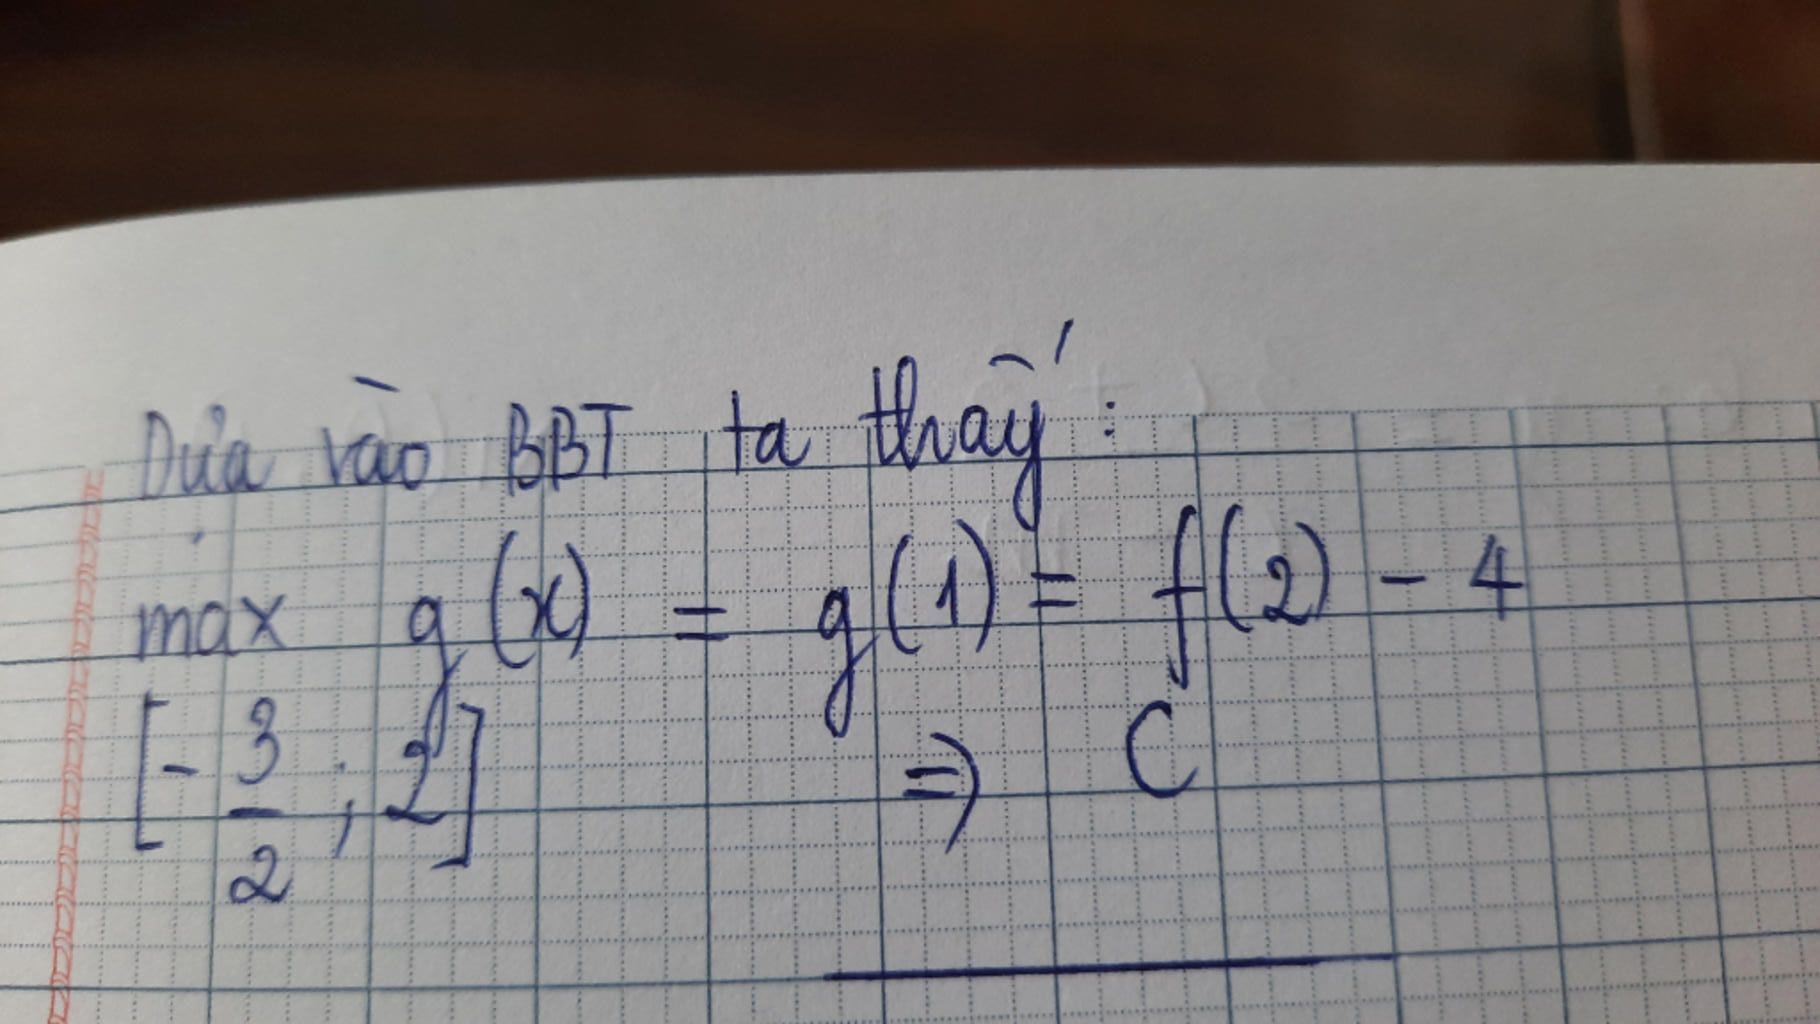 Dựa vào BBT ta thấy:
max g(x) = g(1) = f(2) - 4
[-3/2; 2] => C